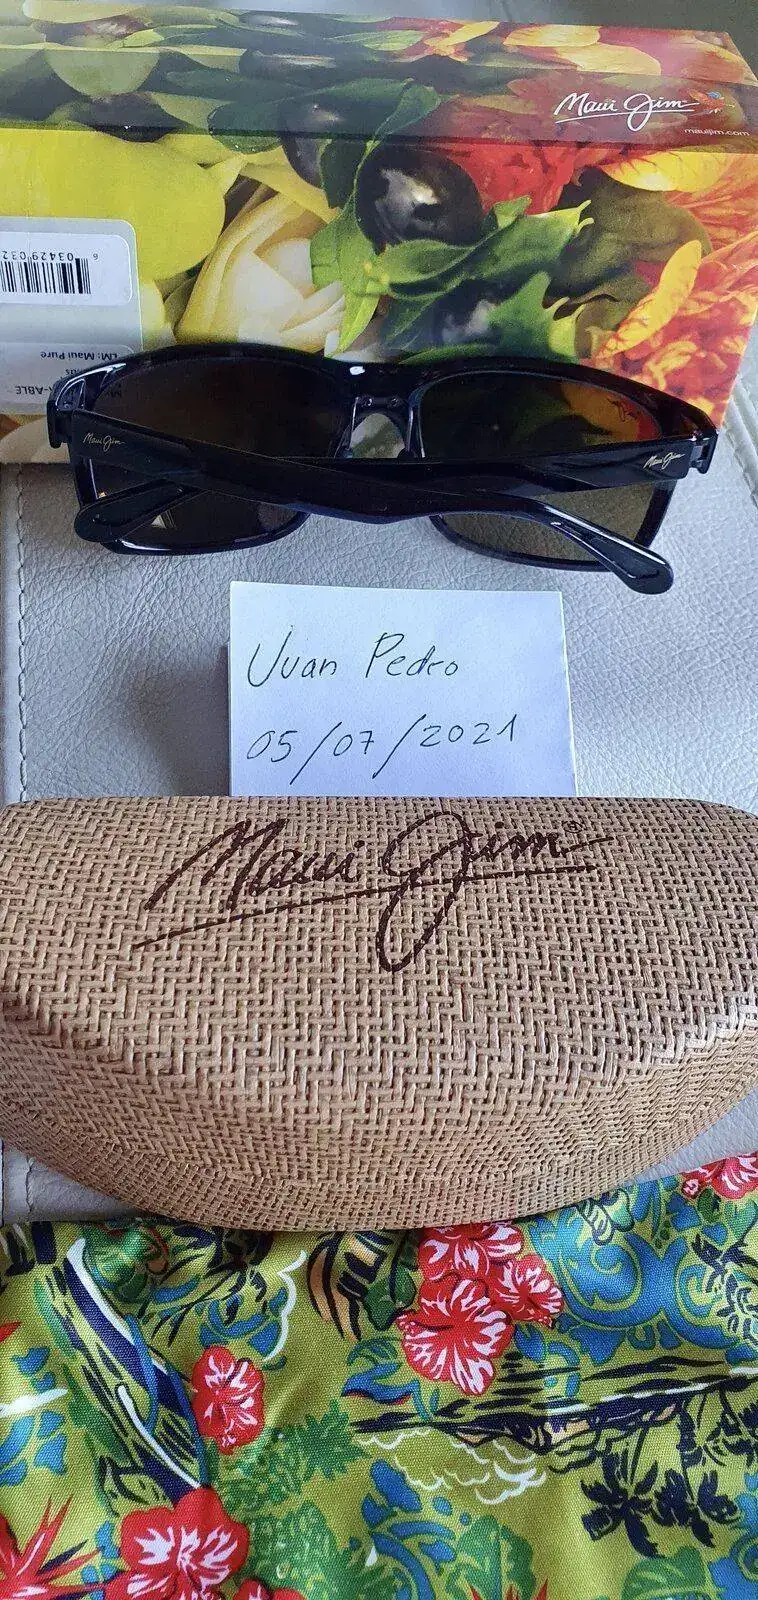 Maui Jim
mauijim.com
6 03429 032
LM: Maui Pure
-ABLE
Maui Jim
Maui Jim
Juan Pedro
05/07/2021
Maui Jim®